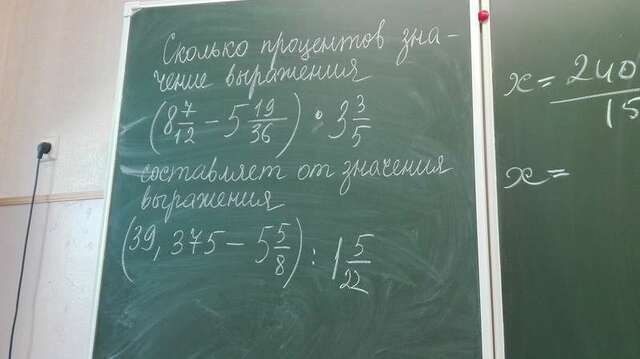 Сколько процентов зна-
чение выражения
(8 7/12 - 5 19/36) · 3 3/5
составляет от значения
выражения
(39,375 - 5 5/8) : 1 5/22
x = 240/15
x =